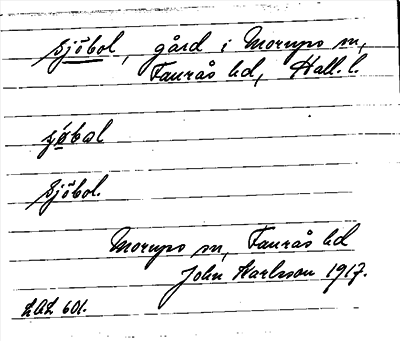 Sjöbol, gård i Morups sn,
Faurås hd, Hall. l.
sjöbol
Sjöbol.
Morups sn, Faurås hd
John Karlsson 1917.
LAL 601.